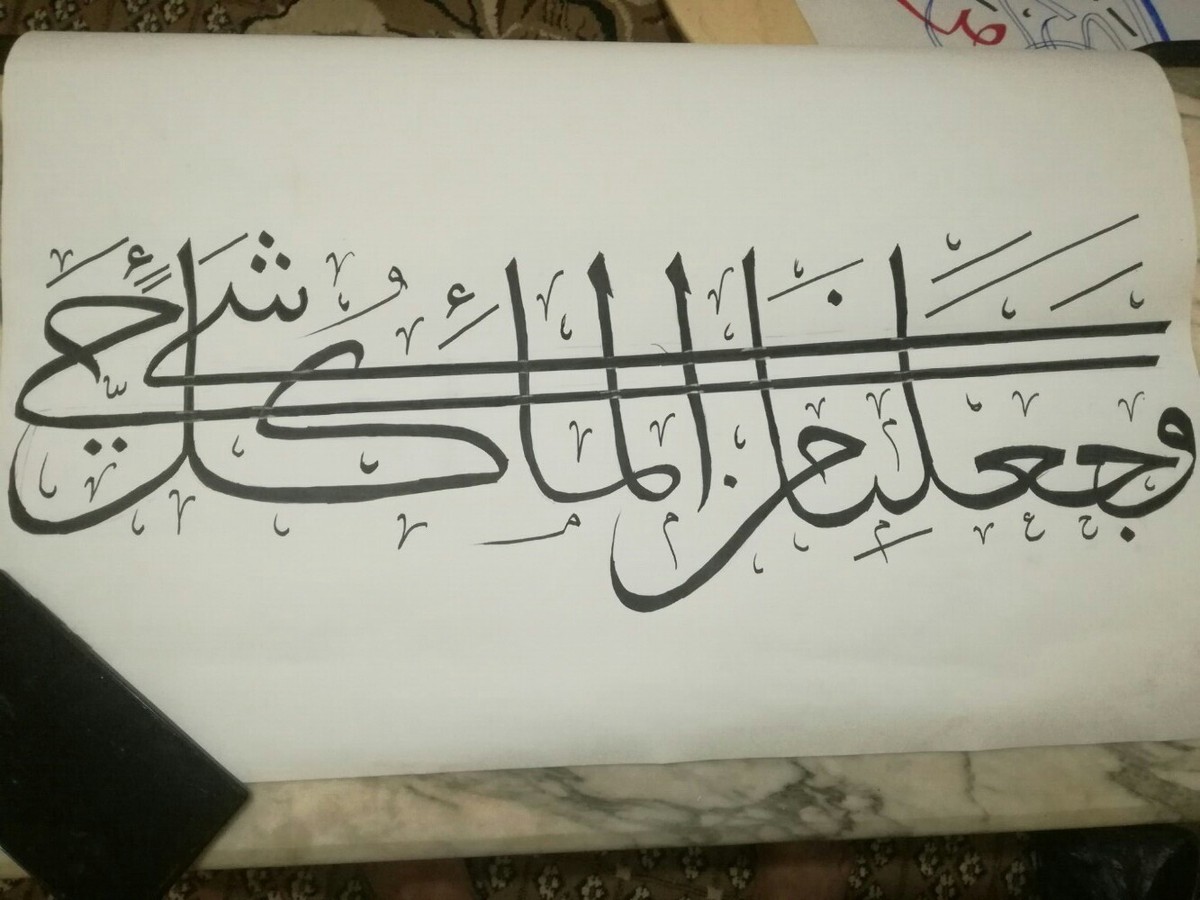 وَجَعَلْنَا مِنَ الْمَاءِ كُلَّ شَيْءٍ حَيٍّ